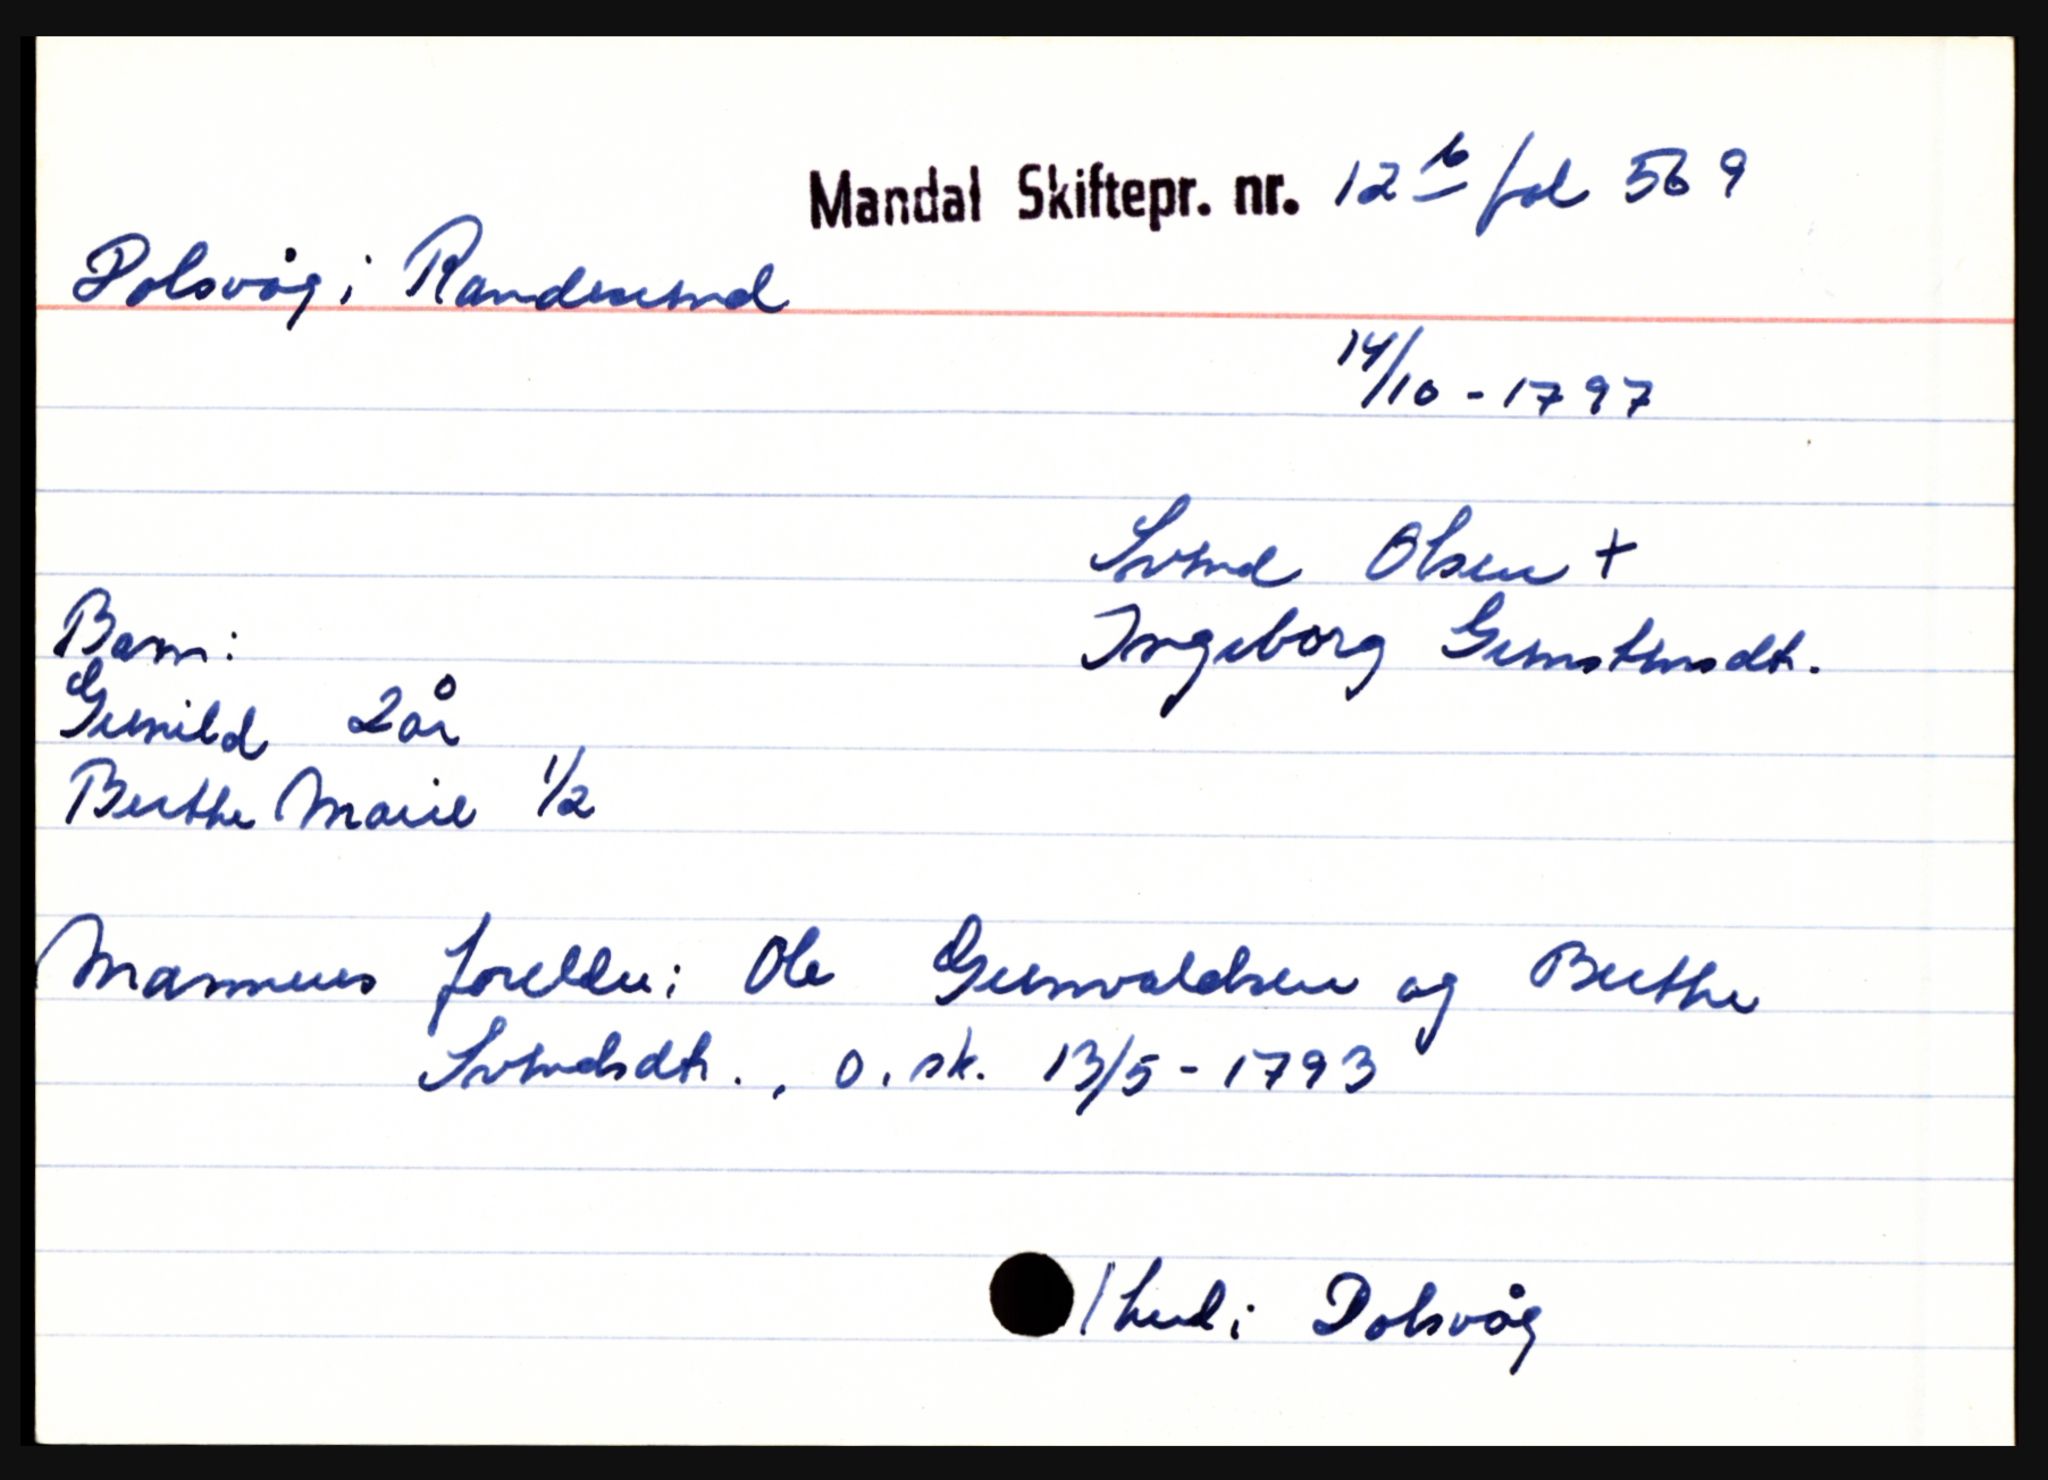 Mandal Skiftepr. nr. 12 b fol 569
Dolsvåg i Randesund
14/10 - 1797
Svend Olsen +
Ingeborg Gunstensdtr.
Barn:
Gunild 2 år
Berthe Marie 1/2
Mannens foreldre: Ole Gunvaldsen og Berthe
Svendsdtr., o. sk. 13/5 - 1793
1 hud i Dolsvåg